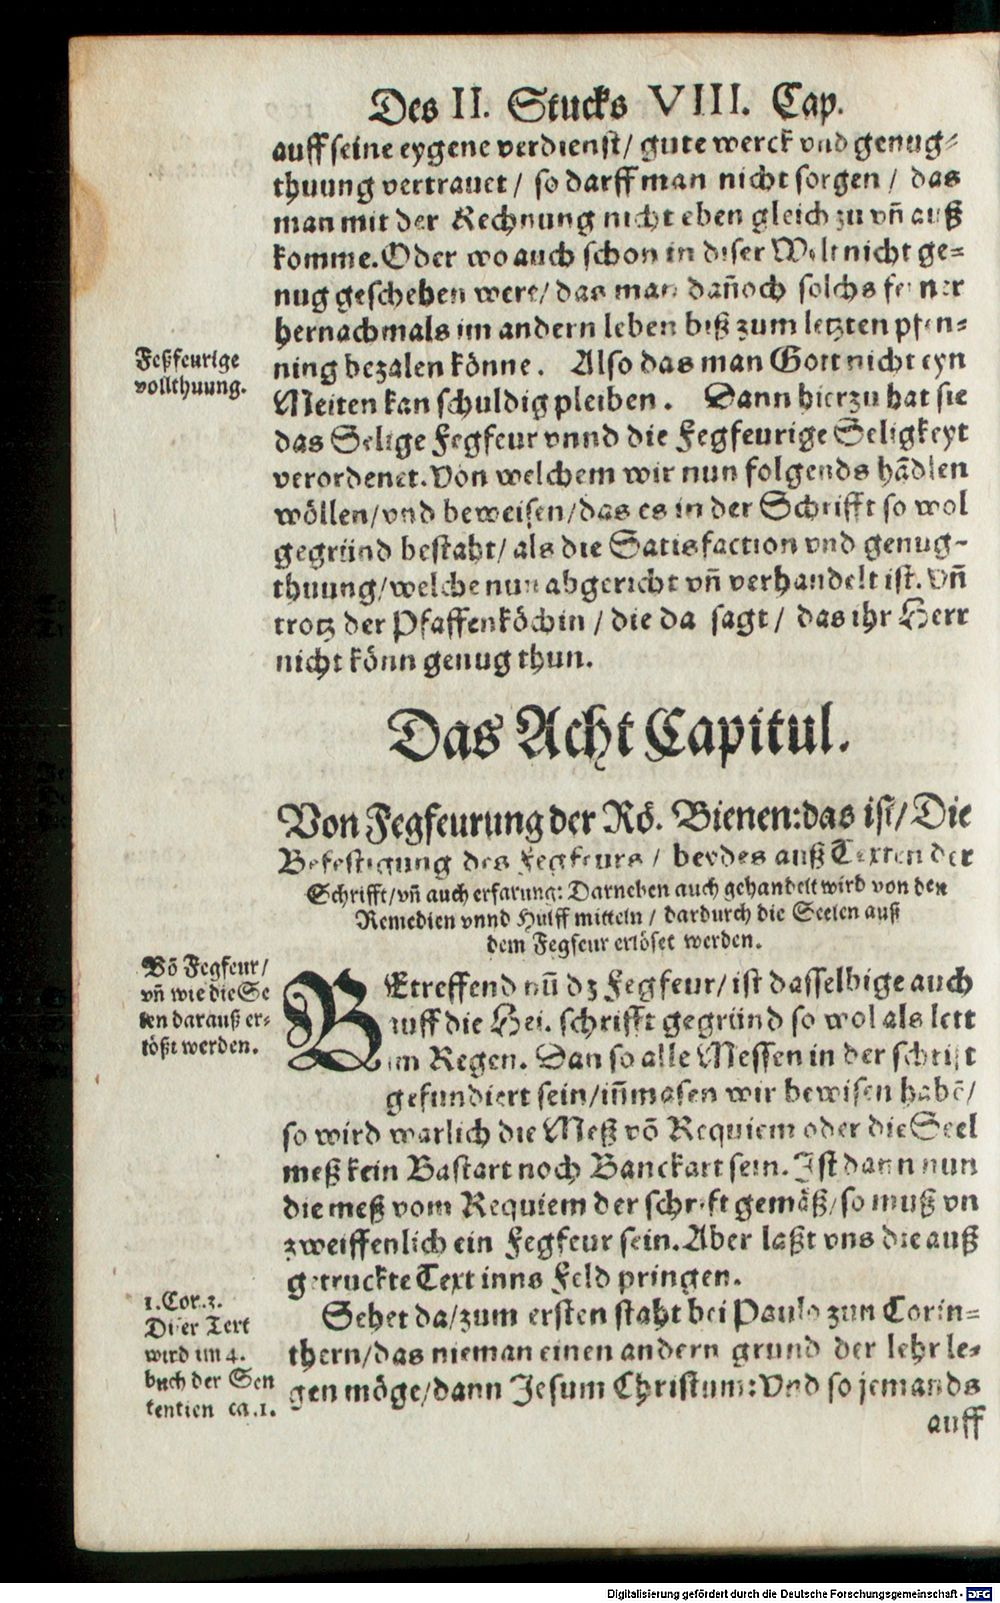 Des II. Stucks VIII. Cap.
auff seine eygene verdienst/ gute werck vnd genug-
thuung vertrauet / so darff man nicht sorgen / das
man mit der Rechnung nicht eben gleich zu vñ auß
komme. Oder wo auch schon in diser Welt nicht ge-
nug geschehen were/ das man dañoch solchs ferner
hernachmals im andern leben biß zum letzten pfen-
ning bezalen könne. Also das man Gott nicht eyn
Meiten kan schuldig pleiben. Dann hierzu hat sie
das Selige Fegfeur vnnd die Fegfeurige Seligkeyt
verordenet. Von welchem wir nun folgends hãdlen
wöllen/ vnd beweisen/ das es in der Schrifft so wol
gegründ bestaht/ als die Satisfaction vnd genug-
thuung/ welche nun abgericht vñ verhandelt ist. Vñ
trotz der Pfaffenköchin / die da sagt / das ihr Herr
nicht könn genug thun.
Feßfeurige
vollthuung.
Das Acht Capitul.
Von Fegfeurung der Rö. Bienen: das ist/ Die
Befestigung des Fegfeurs / beydes auß Texten der
Schrifft/ vñ auch erfarung: Darneben auch gehandelt wird von den
Remedien vnnd Hülff mitteln / dardurch die Seelen auß
dem Fegfeur erlöset werden.
Võ Fegfeur/
vñ wie die Se
len darauß er-
lößt werden.
BEtreffend nũ dz Fegfeur/ ist dasselbige auch
auff die Hei. schrifft gegründ so wol als lett
im Regen. Dan so alle Messen in der schrift
gefundiert sein/ iñmasen wir bewisen habẽ/
so wird warlich die Meß võ Requiem oder die Seel
meß kein Bastart noch Banckart sein. Ist dann nun
die meß vom Requiem der schrift gemäß/ so muß vn
zweiffenlich ein Fegfeur sein. Aber laßt vns die auß
getruckte Text inns Feld pringen.
Sehet da/ zum ersten staht bei Paulo zun Corin-
thern/ das nieman einen andern grund der lehr le-
gen möge/ dann Jesum Christum: Vnd so jemands
1. Cor. 3.
Diser Text
wird im 4.
buch der Sen
tentien ca. 1.
auff
Digitalisierung gefördert durch die Deutsche Forschungsgemeinschaft - DFG